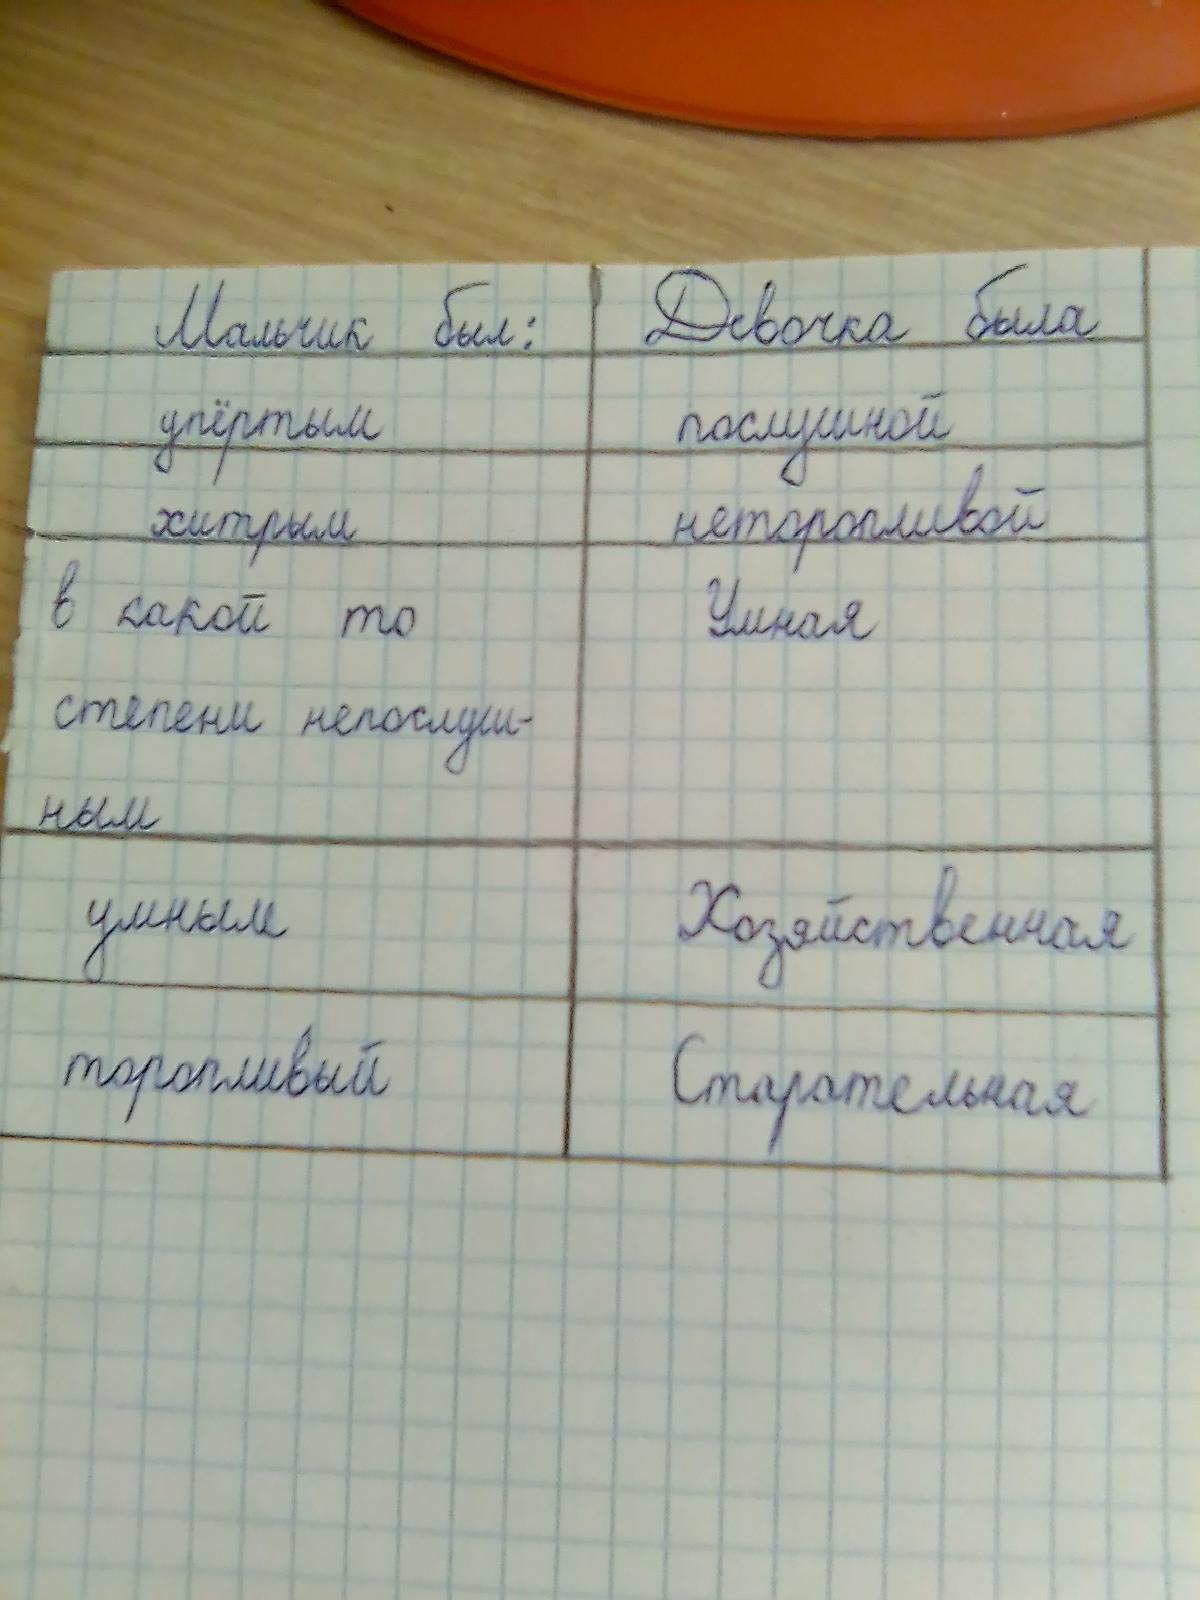 Мальчик был: Девочка была
упёртым послушной
хитрым неторопливой
в какой то Умная
степени непослуш-
ным
умным Хозяйственная
торопливый Старательная